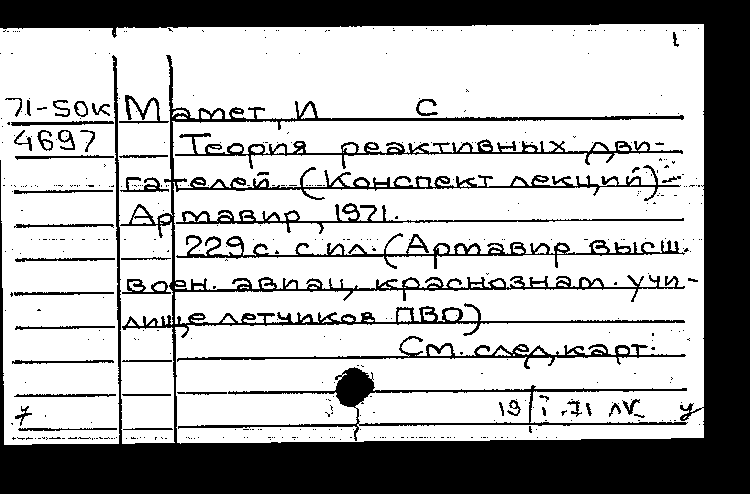 1
71-50к Мамет, И С
4697 Теория реактивных дви-
гателей (Конспект лекций)-
Армавир, 1971.
229 с. с ил. (Армавир высш.
воен. авиац. краснознам. учи-
лище летчиков ПВО)
См. след. карт.
7 19/I.71 у